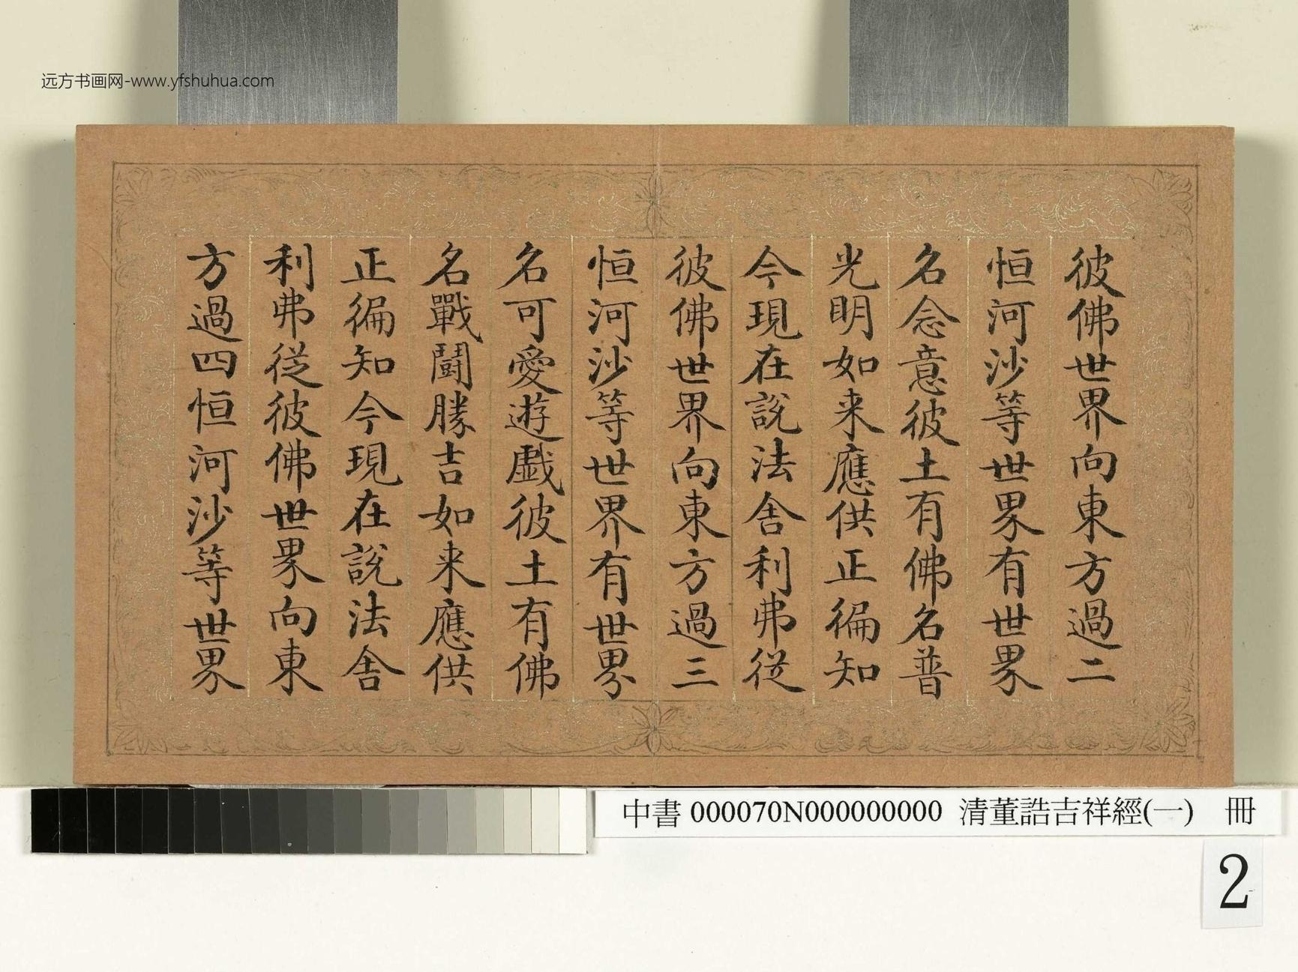 远方书画网-www.yfshuhua.com
彼佛世界向東方過二
恒河沙等世界有世界
名念意彼土有佛名普
光明如来應供正徧知
今現在說法舍利弗從
彼佛世界向東方過三
恒河沙等世界有世界
名可愛遊戲彼土有佛
名戰鬪勝吉如来應供
正徧知今現在說法舍
利弗從彼佛世界向東
方過四恒河沙等世界
中書 000070N000000000 清董誥吉祥經(一) 冊
2